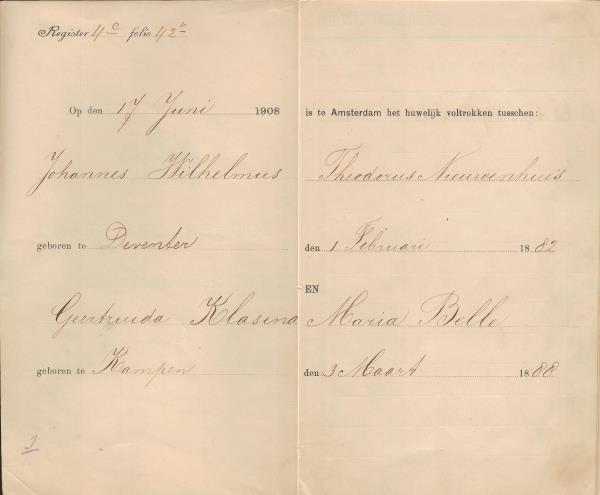 Register 4c folio 42v
Op den 17 Juni 1908 is te Amsterdam het huwelijk voltrokken tusschen:
Johannes Wilhelmus Theodorus Nieuwenhuis
geboren te Deventer den 1 Februari 1882
EN
Geertruida Klasina Maria Belle
geboren te Kampen den 3 Maart 1888